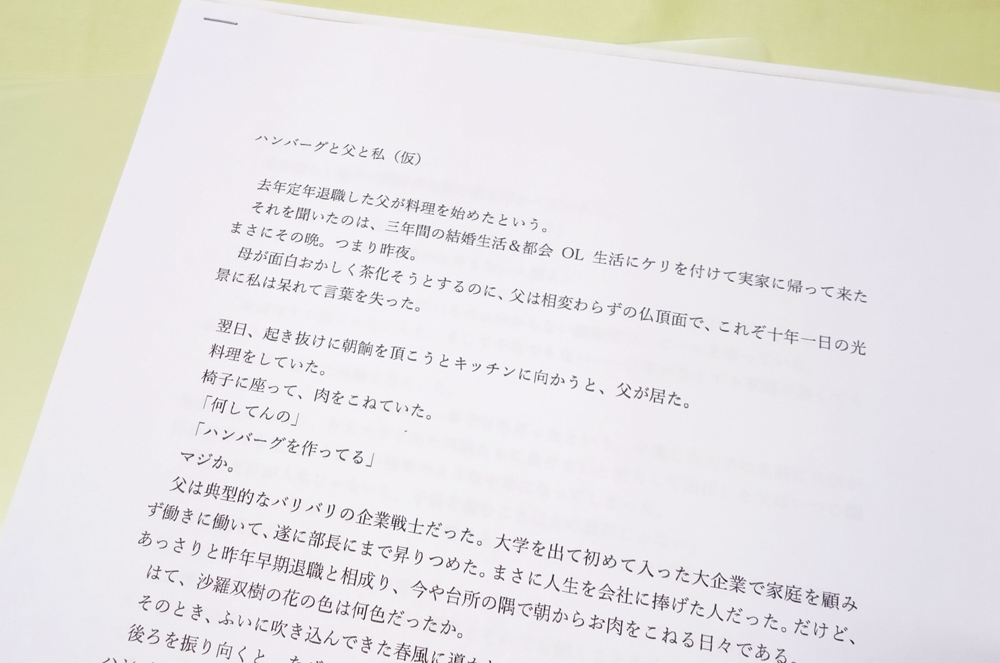 ハンバーグと父と私（仮）
去年定年退職した父が料理を始めたという。
それを聞いたのは、三年間の結婚生活＆都会 OL 生活にケリを付けて実家に帰って来た
まさにその晩。つまり昨夜。
母が面白おかしく茶化そうとするのに、父は相変わらずの仏頂面で、これぞ十年一日の光
景に私は呆れて言葉を失った。
翌日、起き抜けに朝餉を頂こうとキッチンに向かうと、父が居た。
料理をしていた。
椅子に座って、肉をこねていた。
「何してんの」
「ハンバーグを作ってる」
マジか。
父は典型的なバリバリの企業戦士だった。大学を出て初めて入った大企業で家庭を顧み
ず働きに働いて、遂に部長にまで昇りつめた。まさに人生を会社に捧げた人だった。だけど、
あっさりと昨年早期退職と相成り、今や台所の隅で朝からお肉をこねる日々である。
はて、沙羅双樹の花の色は何色だったか。
そのとき、ふいに吹き込んできた春風に
後ろを振り向くと、